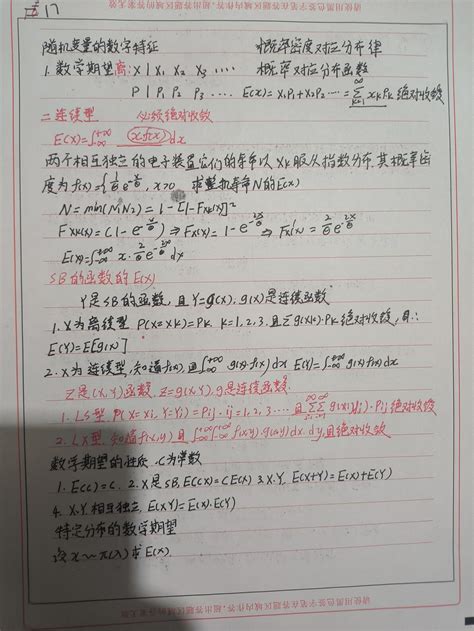 17
随机变量的数字特征 概率密度对应分布律
1. 数学期望离: X | X₁ X₂ X₃ .... 概率对应分布函数
P | P₁ P₂ P₃ .... E(x)=X₁P₁+X₂P₂ ....=∑ XkPk 绝对收敛
二连续型 必须绝对收敛
E(X)=∫₋∞⁺∞ x f(x) dx
两个相互独立的电子装置它们的寿命以 Xk服从指数分布,其概率密
度为f(x)={1/θ e^(-x/θ), x>0 求整机寿命N的E(x)
N = min(N₁N₂) = 1-[1-F(x)]²
F(x) = (1-e^(-x/θ)) ⇒ F(x)=1-e^(-2x/θ) ⇒ f(x)=2/θ e^(-2x/θ)
E(x)=∫₋∞⁺∞ x·2/θ e^(-2x/θ) dx
SB的函数的E(X)
Y是SB的函数,且Y=g(x),g(x)是连续函数
1. X为离散型 P(X=Xk)=Pk. k=1,2,3,且∑g(xk)·Pk绝对收敛,
E(Y)=E[g(x)]
2. X为连续型,知道f(x),且∫₋∞⁺∞ g(x)f(x)dx E(Y)=∫₋∞⁺∞ g(x)f(x)dx
Z是(X,Y)函数,Z=g(X,Y),g是连续函数
1. LS型,P(X=xi,Y=Yj)=Pij·ij=1,2,3....且∑∑g(xi,yj)·Pij绝对收敛
2. LX型,知道f(x,y)且∫₋∞⁺∞∫₋∞⁺∞ f(x,y)·g(x,y)dx dy,且绝对收敛
数学期望的性质.C为常数
1. E(C)=C. 2. X是SB,E(CX)=CE(X) 3. X.Y, E(X+Y)=E(X)+E(Y)
4. X.Y.相互独立,E(XY)=E(X)·E(Y)
特定分布的数学期望
设x~π(λ)求E(X)